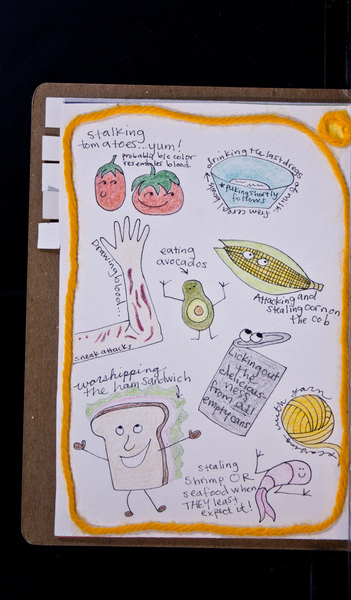 stalking
tomatoes...yum!
probably b/c color
resembles blood.
drinking the last drops of milk from cereal bowls
*Puking shortly
follows
Drawing blood...
sneak attacks
eating
avocados
Attacking and
stealing corn on
the cob
Licking out
the
delicious-
ness
from ALL
empty cans
worshipping
the ham sandwich
with yarn
staling
shrimp OR
seafood when
THEY least
expect it!